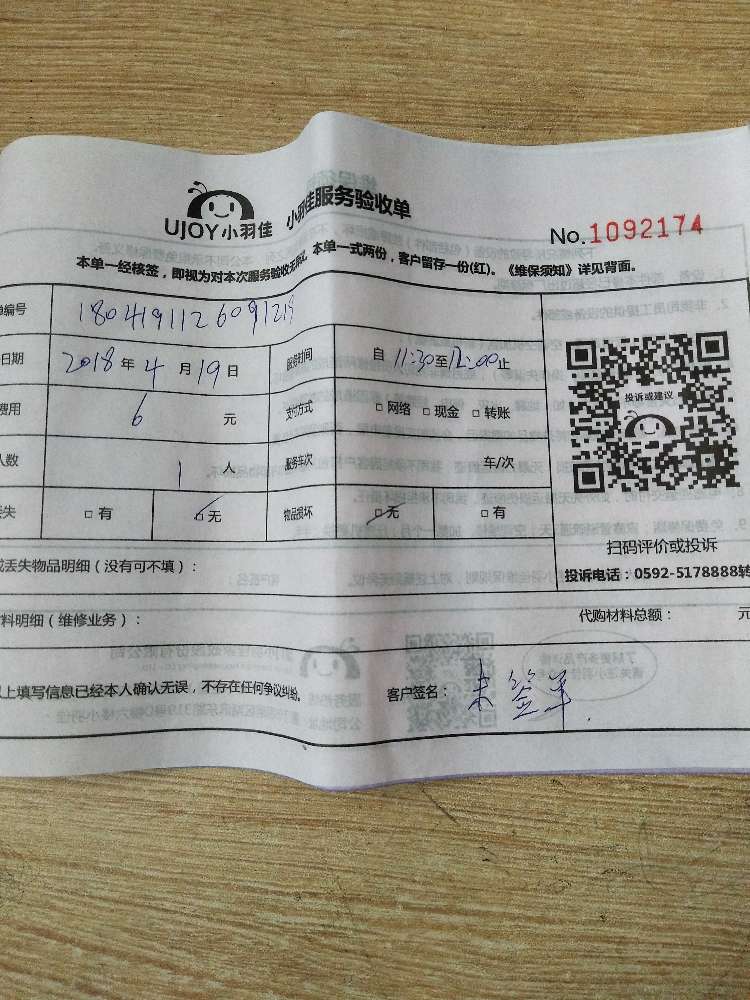 UJOY小羽佳 小羽佳服务验收单
No.1092174
本单一经核签，即视为对本次服务验收无异议。本单一式两份，客户留存一份(红)。《维保须知》详见背面。
编号 1804191126091219
日期 2018年4月19日 服务时间 自11:30至12:00止
费用 6元 支付方式 □网络 □现金 □转账
人数 1人 服务车次 车/次
失 □有 □无 物品损坏 □无 □有
投诉或建议
扫码评价或投诉
投诉电话：0592-5178888转
丢失物品明细（没有可不填）：
料明细（维修业务）： 代购材料总额： 元
上填写信息已经本人确认无误，不存在任何争议纠纷。 客户签名：未签单